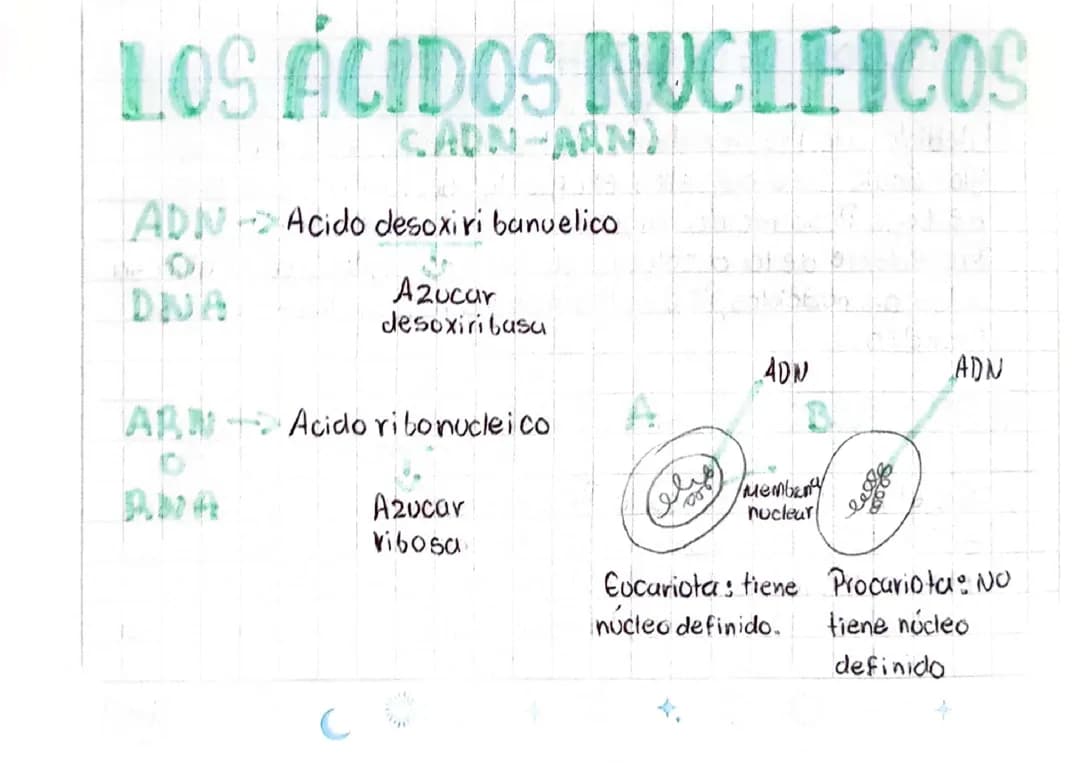 LOS ÁCIDOS NUCLEICOS
(ADN-ARN)
ADN -> Acido desoxiri banuelico
O
DNA
Azucar
desoxiribasa
ARN -> Acido ribonucleico
O
RNA
Azucar
ribosa
A
ADN
Membana
nuclear
Eucariota: tiene
núcleo definido.
B
ADN
Procariota: NO
tiene núcleo
definido